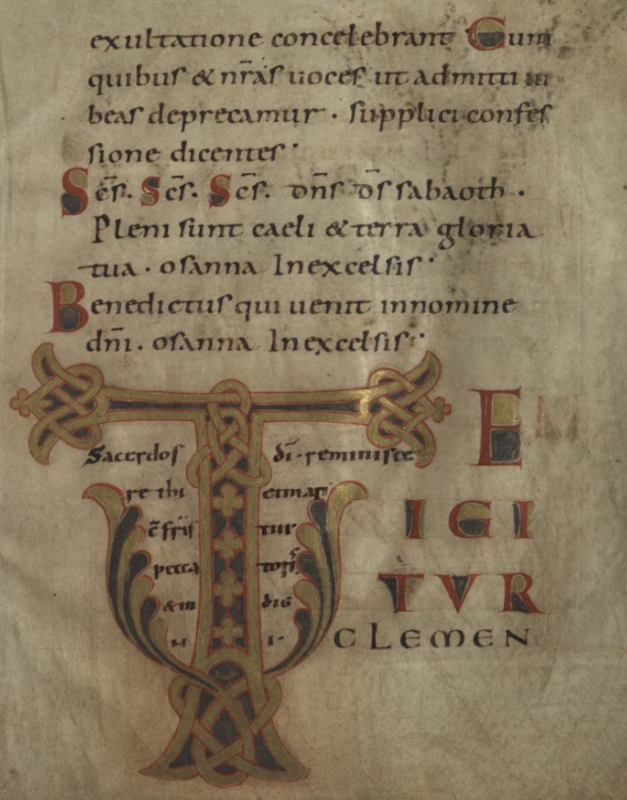 exultatione concelebrant Cum
quibus & nr̄as uoces ut admitti iu
beas deprecamur · supplici confes
sione dicentes
Sc̄s. Sc̄s. Sc̄s. dn̄s d̄s sabaoth .
Pleni sunt caeli & terra gloria
tua . osanna In excelsis
Benedictus qui uenit innomine
dn̄i . osanna In excelsis
TE
IGI
TUR
CLEMEN
Sacerdos dī. reminisce
re tibi
c̄ fr̄is tur
pecca toris
& in die